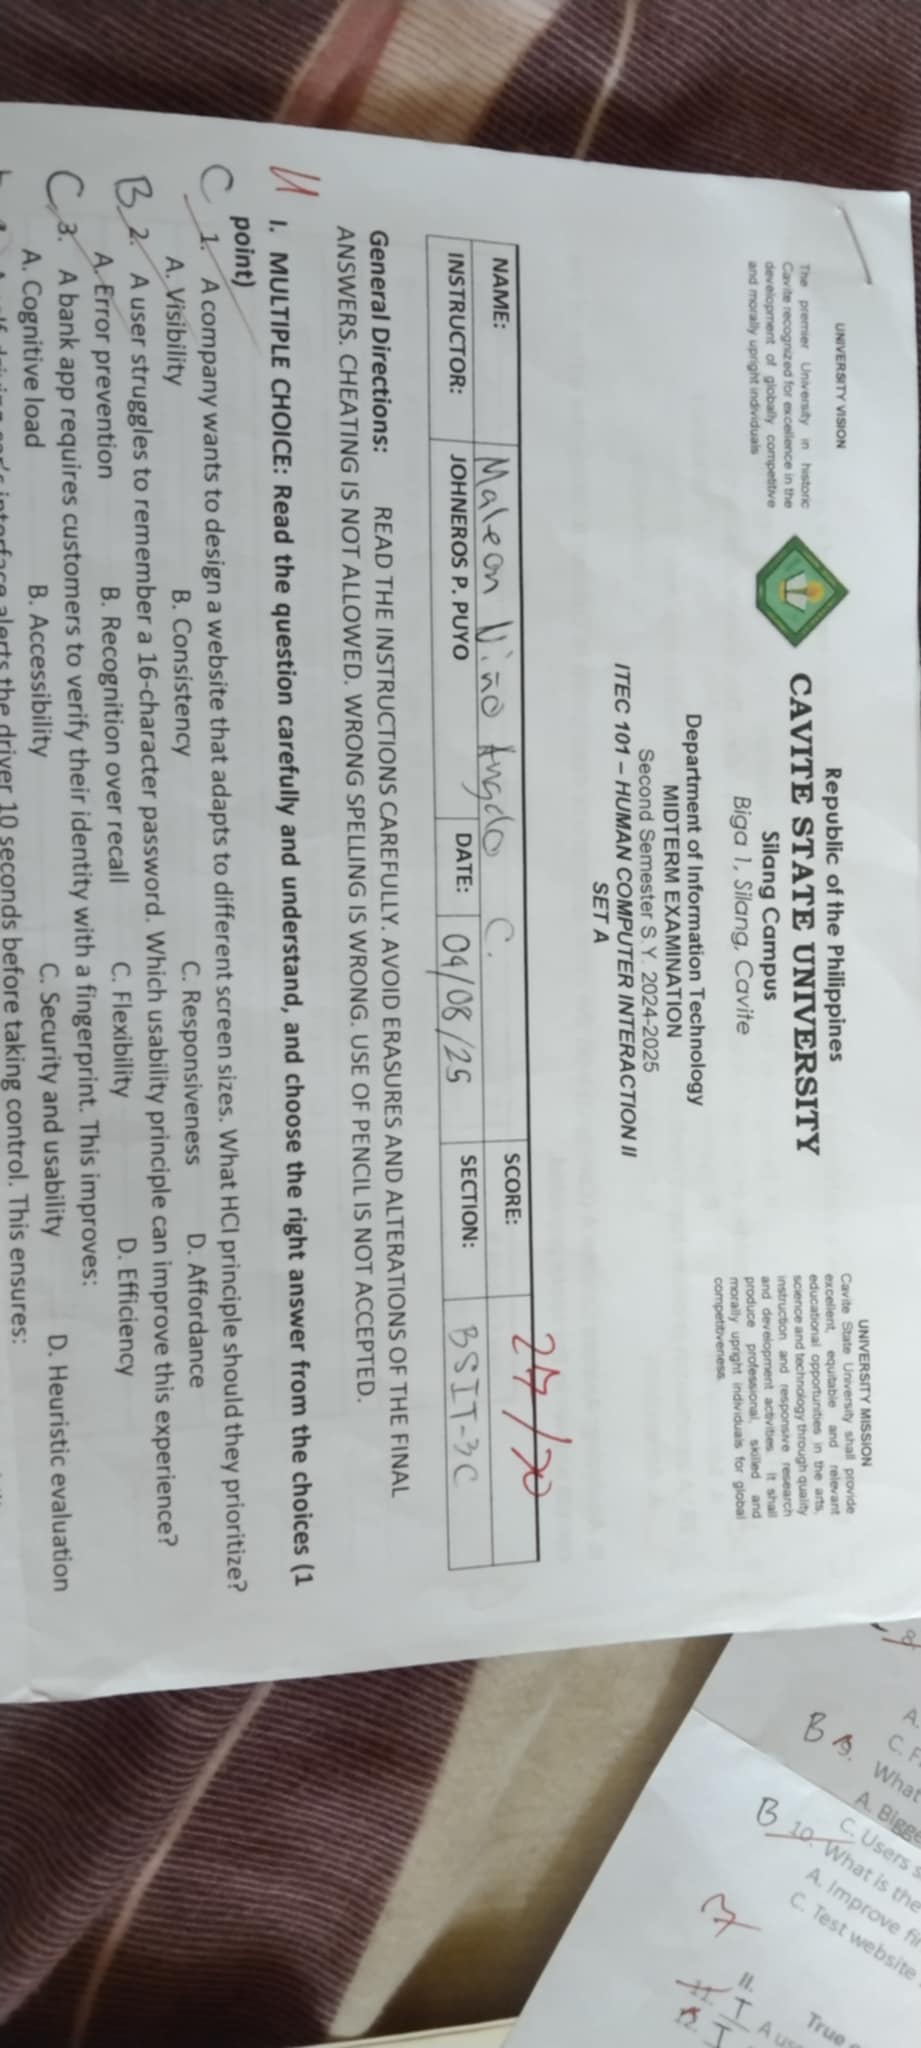 UNIVERSITY VISION
The premier University in historic
Cavite recognized for excellence in the
development of globally competitive
and morally upright individuals
Republic of the Philippines
CAVITE STATE UNIVERSITY
Silang Campus
Biga 1, Silang, Cavite
UNIVERSITY MISSION
Cavite State University shall provide
excellent, equitable and relevant
educational opportunities in the arts,
science and technology through quality
instruction and responsive research
and development activities. It shall
produce professional, skilled and
morally upright individuals for global
competitiveness.
Department of Information Technology
MIDTERM EXAMINATION
Second Semester S.Y. 2024-2025
ITEC 101 – HUMAN COMPUTER INTERACTION II
SET A
NAME: Maleon Niño Angelo C. SCORE: 27/70
INSTRUCTOR: JOHNEROS P. PUYO DATE: 04/08/25 SECTION: BSIT-3C
General Directions: READ THE INSTRUCTIONS CAREFULLY. AVOID ERASURES AND ALTERATIONS OF THE FINAL
ANSWERS. CHEATING IS NOT ALLOWED. WRONG SPELLING IS WRONG. USE OF PENCIL IS NOT ACCEPTED.
I. MULTIPLE CHOICE: Read the question carefully and understand, and choose the right answer from the choices (1
point)
C 1. A company wants to design a website that adapts to different screen sizes. What HCI principle should they prioritize?
A. Visibility B. Consistency C. Responsiveness D. Affordance
B 2. A user struggles to remember a 16-character password. Which usability principle can improve this experience?
A. Error prevention B. Recognition over recall C. Flexibility D. Efficiency
C 3. A bank app requires customers to verify their identity with a fingerprint. This improves:
A. Cognitive load B. Accessibility C. Security and usability D. Heuristic evaluation
interface alerts the driver 10 seconds before taking control. This ensures:
What
B 9.
C. Users
B 10. What is the
A. Improve
C. Test website
7
II. True
T A
T